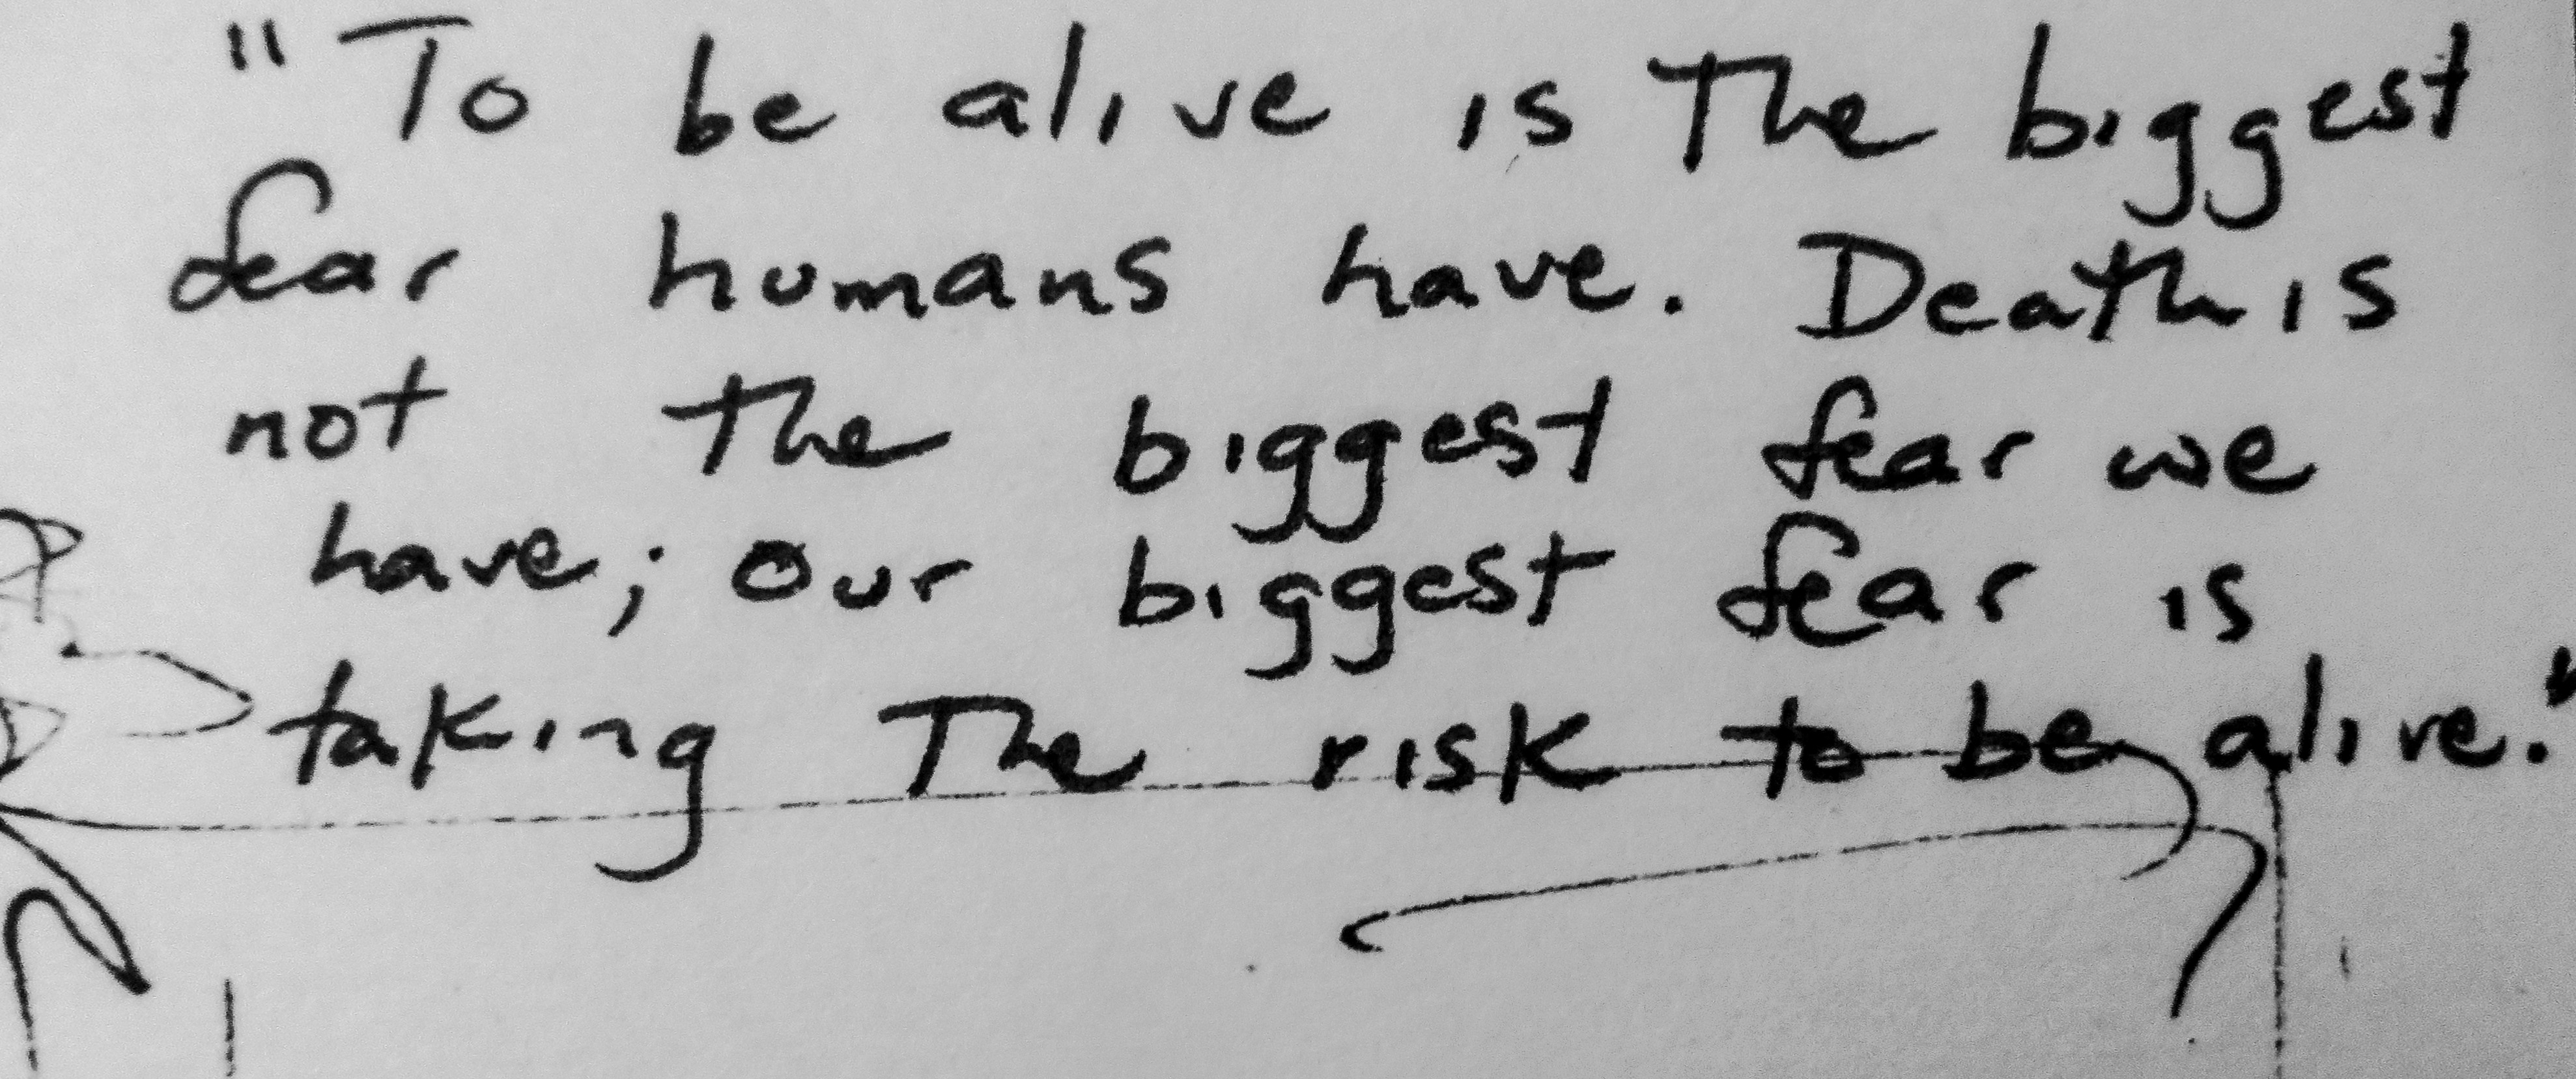 "To be alive is The biggest
fear humans have. Death is
not the biggest fear we
have; our biggest fear is
taking The risk to be alive."